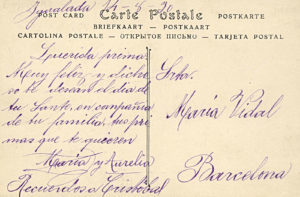 Igualada 15-3-20
POST CARD Carte Postale POSTKARTE
BRIEFKAART — POSTKAART
CARTOLINA POSTALE — ОТКРЫТОЕ ПИСЬМО — TARJETA POSTAL
Querida prima:
Muy feliz y dicho
so te desean el dia de
tu Santo, en compañia
de tu familia, tus pri
mas que te quieren
Maria y Aurelia
Recuerdos a Cristobal
Srta.
Maria Vidal
Barcelona